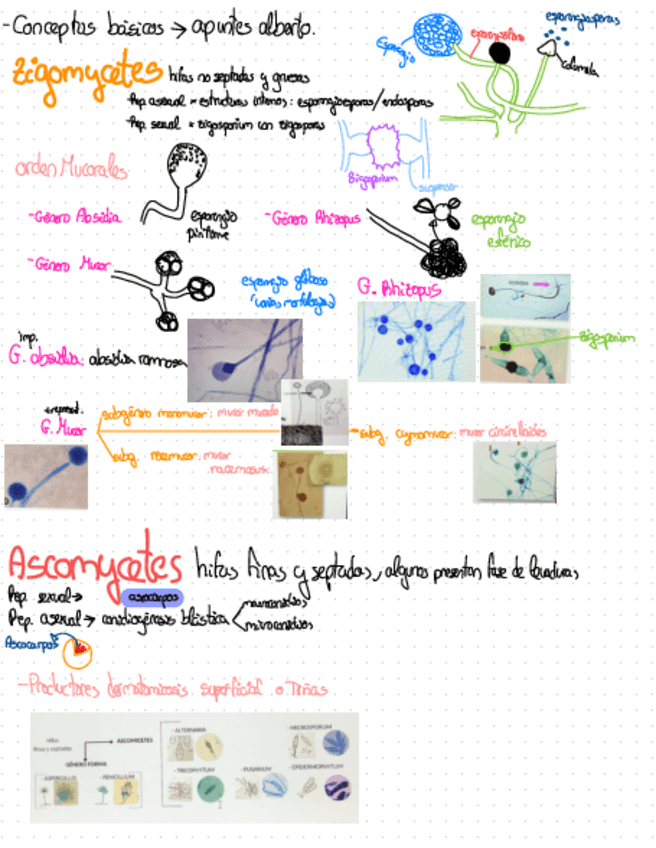 - Conceptos básicos → apuntes alberto.
Esporangio
esporangióforo
esporangiosporas
columela
Zigomycetes hifas no septadas y gruesas
Rep. asexual = estructuras internas: esporangioesporas/endosporas
Rep. sexual = zigosporium con zigosporas
Zigosporium
suspensor
orden Mucorales
- Género Absidia
esporangio
piriforme
- Género Rhizopus
esporangio
esférico
- Género Mucor
esporangio globoso
(varias morfologías)
G. Rhizopus
zigosporium
imp.
G. absidia: absidia ramosa
G. Mucor
subgénero monomucor: mucor mucedo
subg. racemucor: mucor
racemosus
subg. cymomucor: mucor circinelloides
Ascomycetes hifas finas y septadas, algunos presentan fase de levaduras
Rep. sexual → ascocarpos
Rep. asexual → conidiogénesis blástica
macroconidios
microconidios
Ascocarpos
- Productores dermatomicosis superficial o Tiñas.
Hifas
finas y septadas
ASCOMICETES
GÉNERO FORMA
- ASPERGILLUS
- PENICILLIUM
- ALTERNARIA
- MICROSPORUM
- TRICOPHYTUM
- FUSARIUM
- EPIDERMOPHYTUM